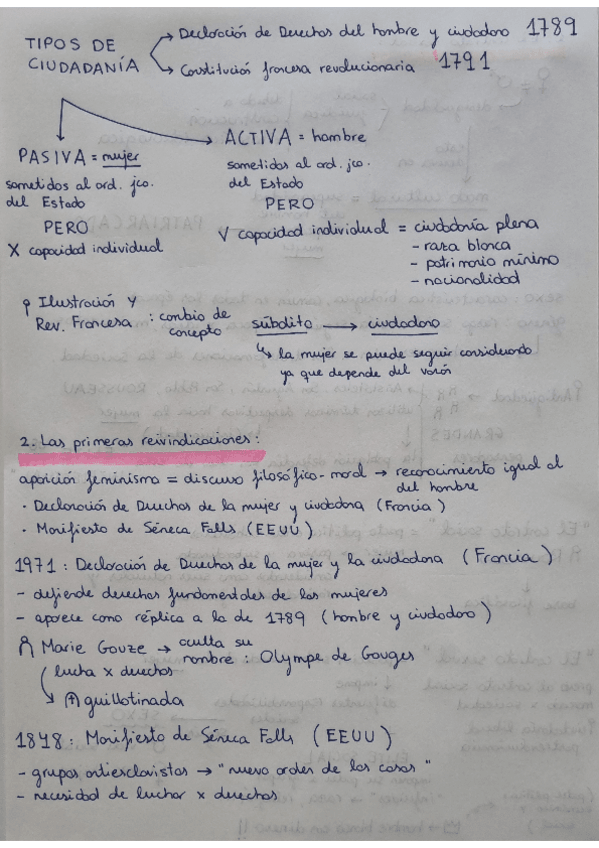 TIPOS DE CIUDADANÍA
→ Declaración de Derechos del hombre y ciudadano 1789
→ Constitución francesa revolucionaria 1791
PASIVA = mujer
sometidos al ord. jco.
del Estado
PERO
X capacidad individual
ACTIVA = hombre
sometidos al ord. jco.
del Estado
PERO
V capacidad individual = ciudadanía plena
- raza blanca
- patrimonio mínimo
- nacionalidad
Ilustración y
Rev. Francesa : cambio de
concepto
súbdito → ciudadano
↳ la mujer se puede seguir considerando
ya que depende del varón
2. Las primeras reivindicaciones:
aparición feminismo = discurso filosófico-moral → reconocimiento igual al
del hombre
· Declaración de Derechos de la mujer y ciudadana (Francia)
· Manifiesto de Séneca Falls (EEUU)
1971: Declaración de Derechos de la mujer y la ciudadana (Francia)
- defiende derechos fundamentales de las mujeres
- aparece como réplica a la de 1789 (hombre y ciudadano)
Marie Gouze → oculta su
nombre : Olympe de Gouges
lucha x derechos
guillotinada
1848: Manifiesto de Séneca Falls (EEUU)
- grupos antiesclavistas → "nuevo orden de las cosas"
- necesidad de luchar x derechos